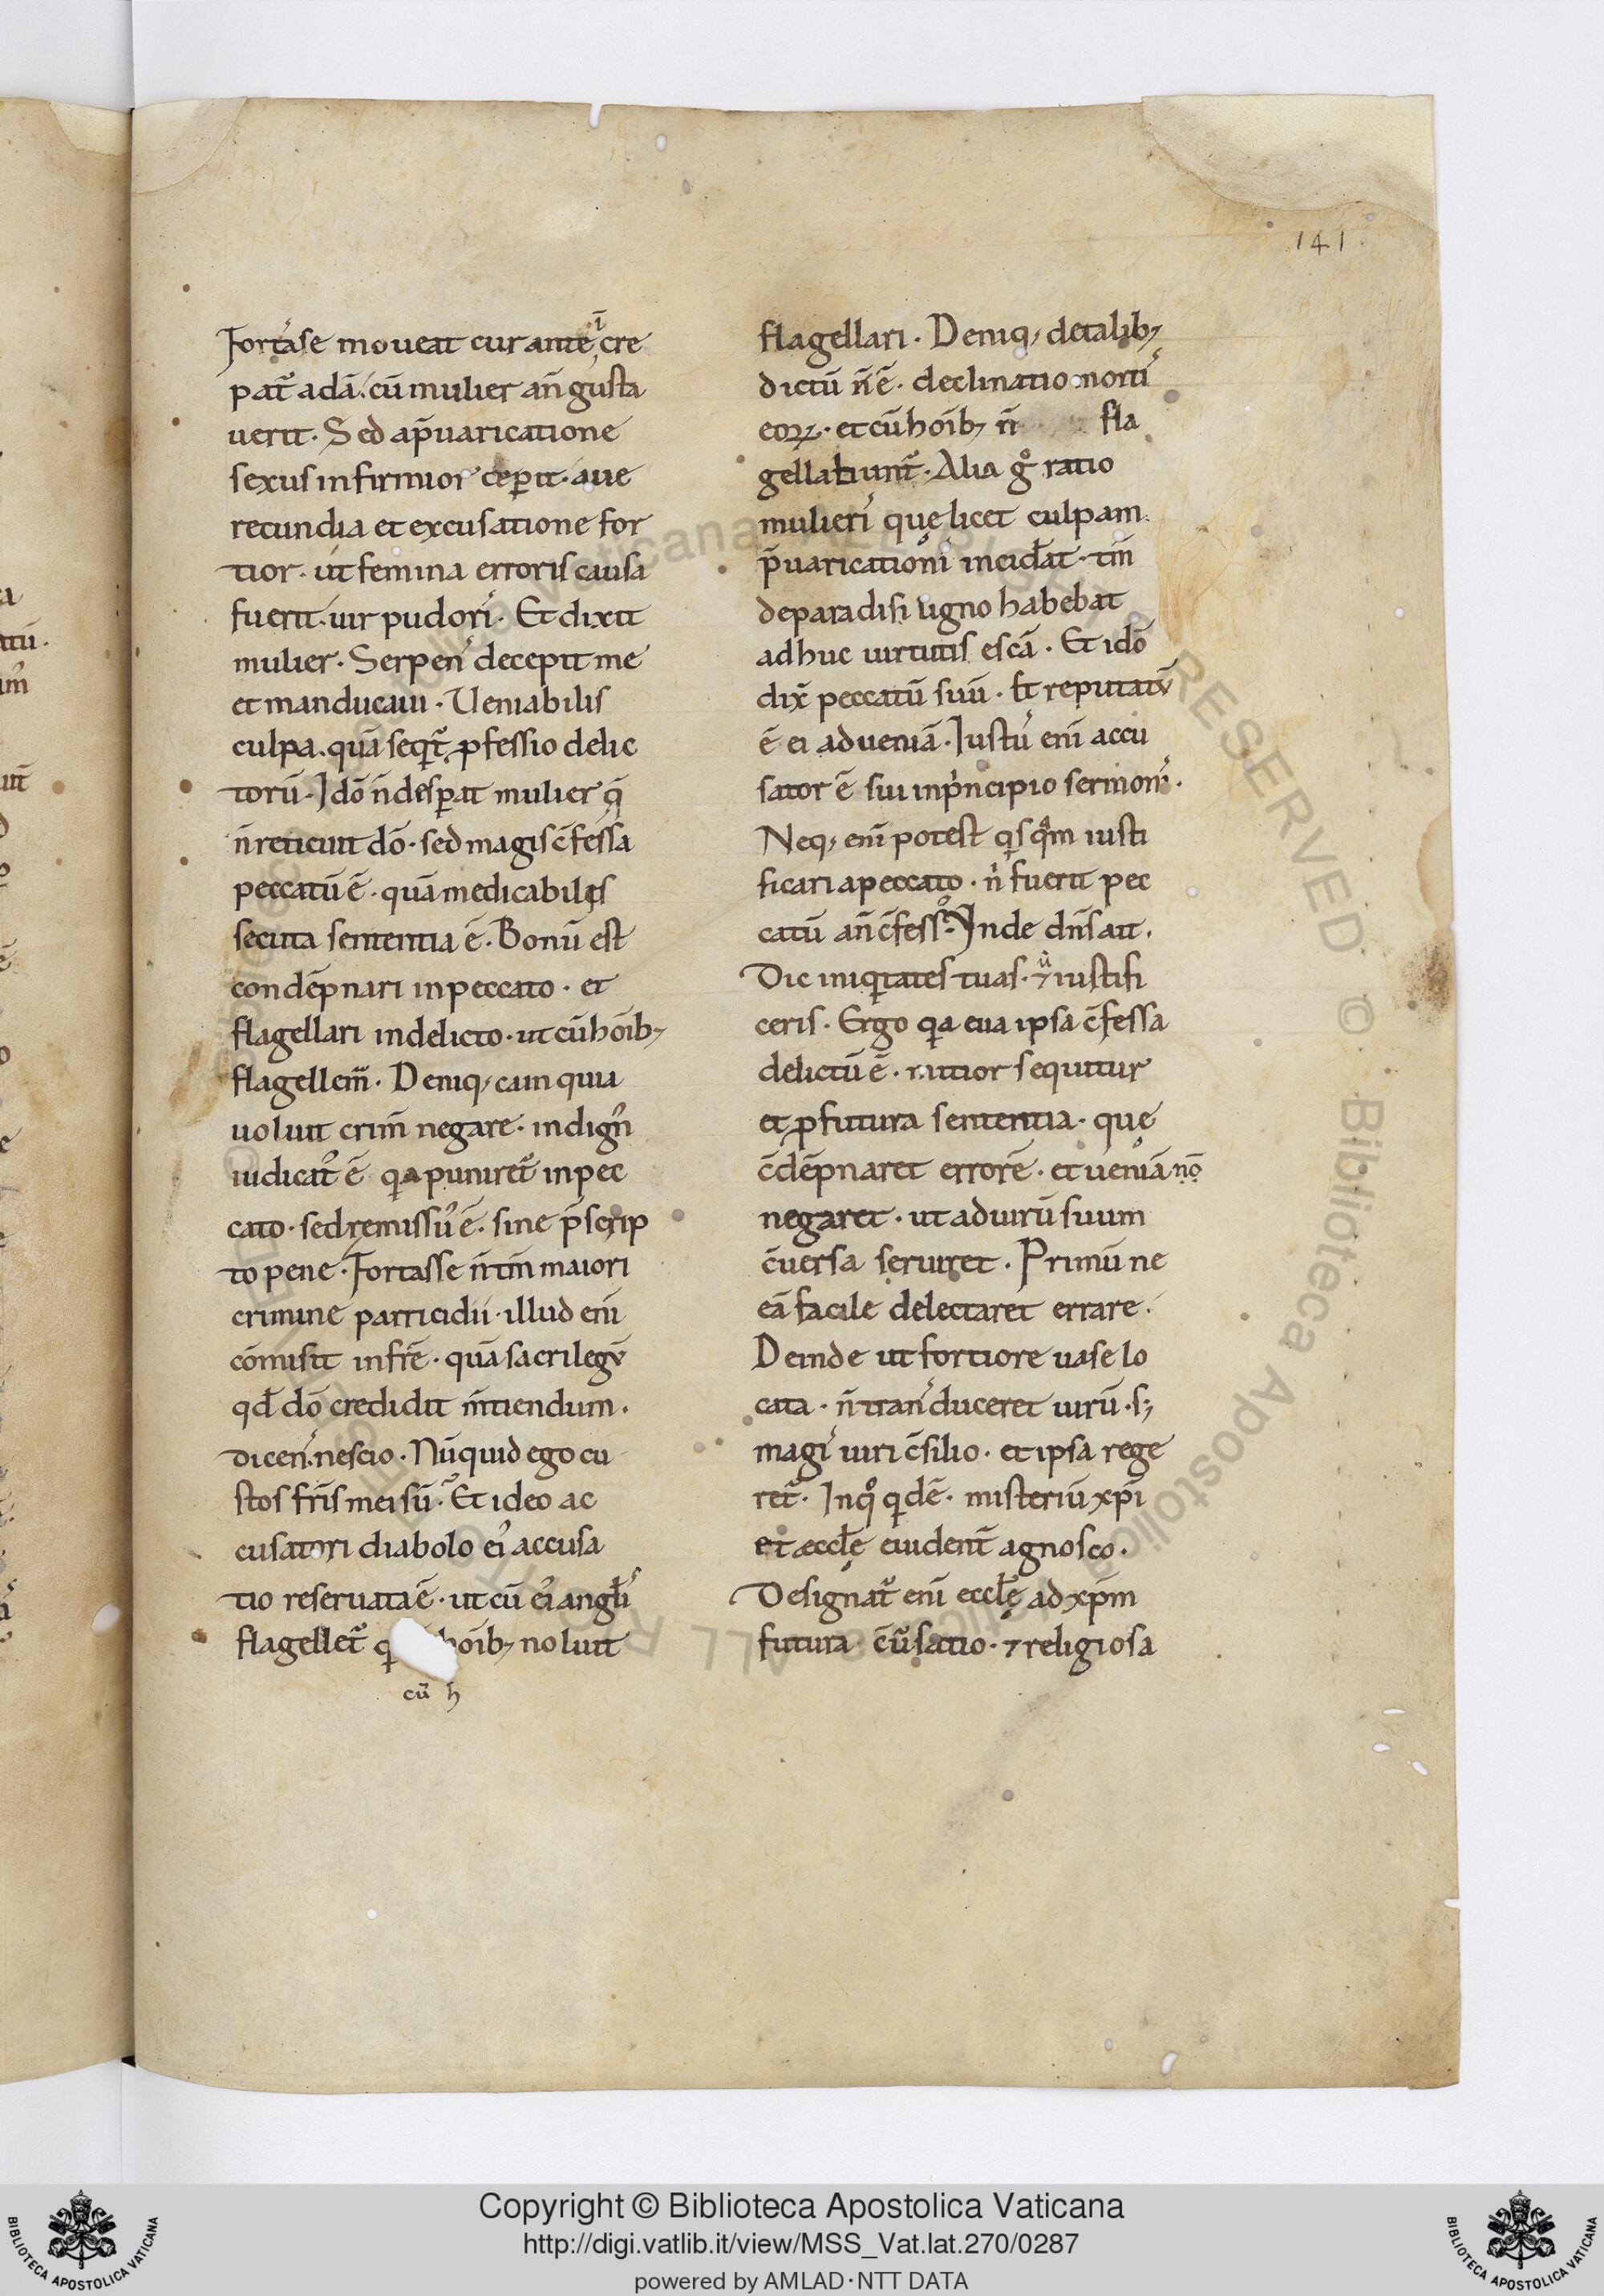 141
Fortasse moueat cur ante ī cre
pat᷑ adā. cū mulier an̄ gusta
uerit. Sed a p̄uaricatione
sexus infirmior cep̲it. a ue
recundia et excusatione for
tior. ut femina erroris causa
fuerit. uir pudoriʼ. Et dixit
mulier. Serpenʼ decepit me
et manducaui. Ueniabilis
culpa. quā seqt᷑ ꝓfessio delic
torū. Idō n̄ desp̲at mulier q̄
n̄ reticuit dō. sed magis c̄fessa
peccatū ē. quā medicabilis
secuta sententia ē. Bonū est
condēpnari in peccato. et
flagellari in delicto. ut cū hoīb;
flagellem᷑. Deniq; cain quia
uoluit crim̄ negare. indignꝰ
iudicatꝰ ē qa puniret᷑ in pec
cato. sed remissuꝰ ē. sine p̄scrip
to pene. Fortasse n̄ tm̄ maiori
crimine parricidii. illud eni̅
cōmisit in frē. quā sacrilegv̄
qd̄ dō credidit m̄tiendum.
dicenʼ. nescio. Nūquid ego cu
stos fr̄is mei sū? Et ideo ac
cusatori diabolo eiꝰ accusa
tio reseruata ē. ut cū eiꝰ angl̄iʼ
flagellet᷑ q hoīb; noluit
cū h
flagellari. Deniq; de talib;
dictū n̄ ē. declinatio mortiʼ
eoꝝ. et cū hoīb; n̄ fla
gellabunt᷑. Alia gͦ ratio
mulieriʼ que licet culpam
p̄uaricatioīʼ incid̄at. tm̄
de paradisi ligno habebat
adhuc uirtutis escā. Et idō
dix̄ peccatū suū. Et reputatv̄
ē ei ad ueniā. Iustuʼ eni̅ accu
sator ē sui in pncipio sermoniʼ.
Neq; eni̅ potest qsqͣm iusti
ficari a peccato. nͥ fuerit pec
catū an̄ c̄fessꝰ. Inde dn̄s ait.
Dic iniqtates tuas. ⁊ iustifi
ceris. Ergo qa eua ipsa c̄fessa
delictū ē. mitior sequitur
et ꝓfutura sententia. quę
c̄dēpnaret errorē. et ueniā nō
negaret. ut ad uirū suum
c̄uersa seruiret. Primū ne
eā facile delectaret errare.
Deinde ut fortiore uase lo
cata. n̄ tranʼduceret uirū. s;
magiʼ uiri c̄silio. et ipsa rege
ret᷑. Inqͦ qdē. misterium xp̄i
et æccl̄ę euident̄ agnosco.
Designat᷑ eni̅ eccl̄ę ad xp̄m
futura c̄ūsatio. ⁊ religiosa
Copyright © Biblioteca Apostolica Vaticana
http://digi.vatlib.it/view/MSS_Vat.lat.270/0287
powered by AMLAD·NTT DATA